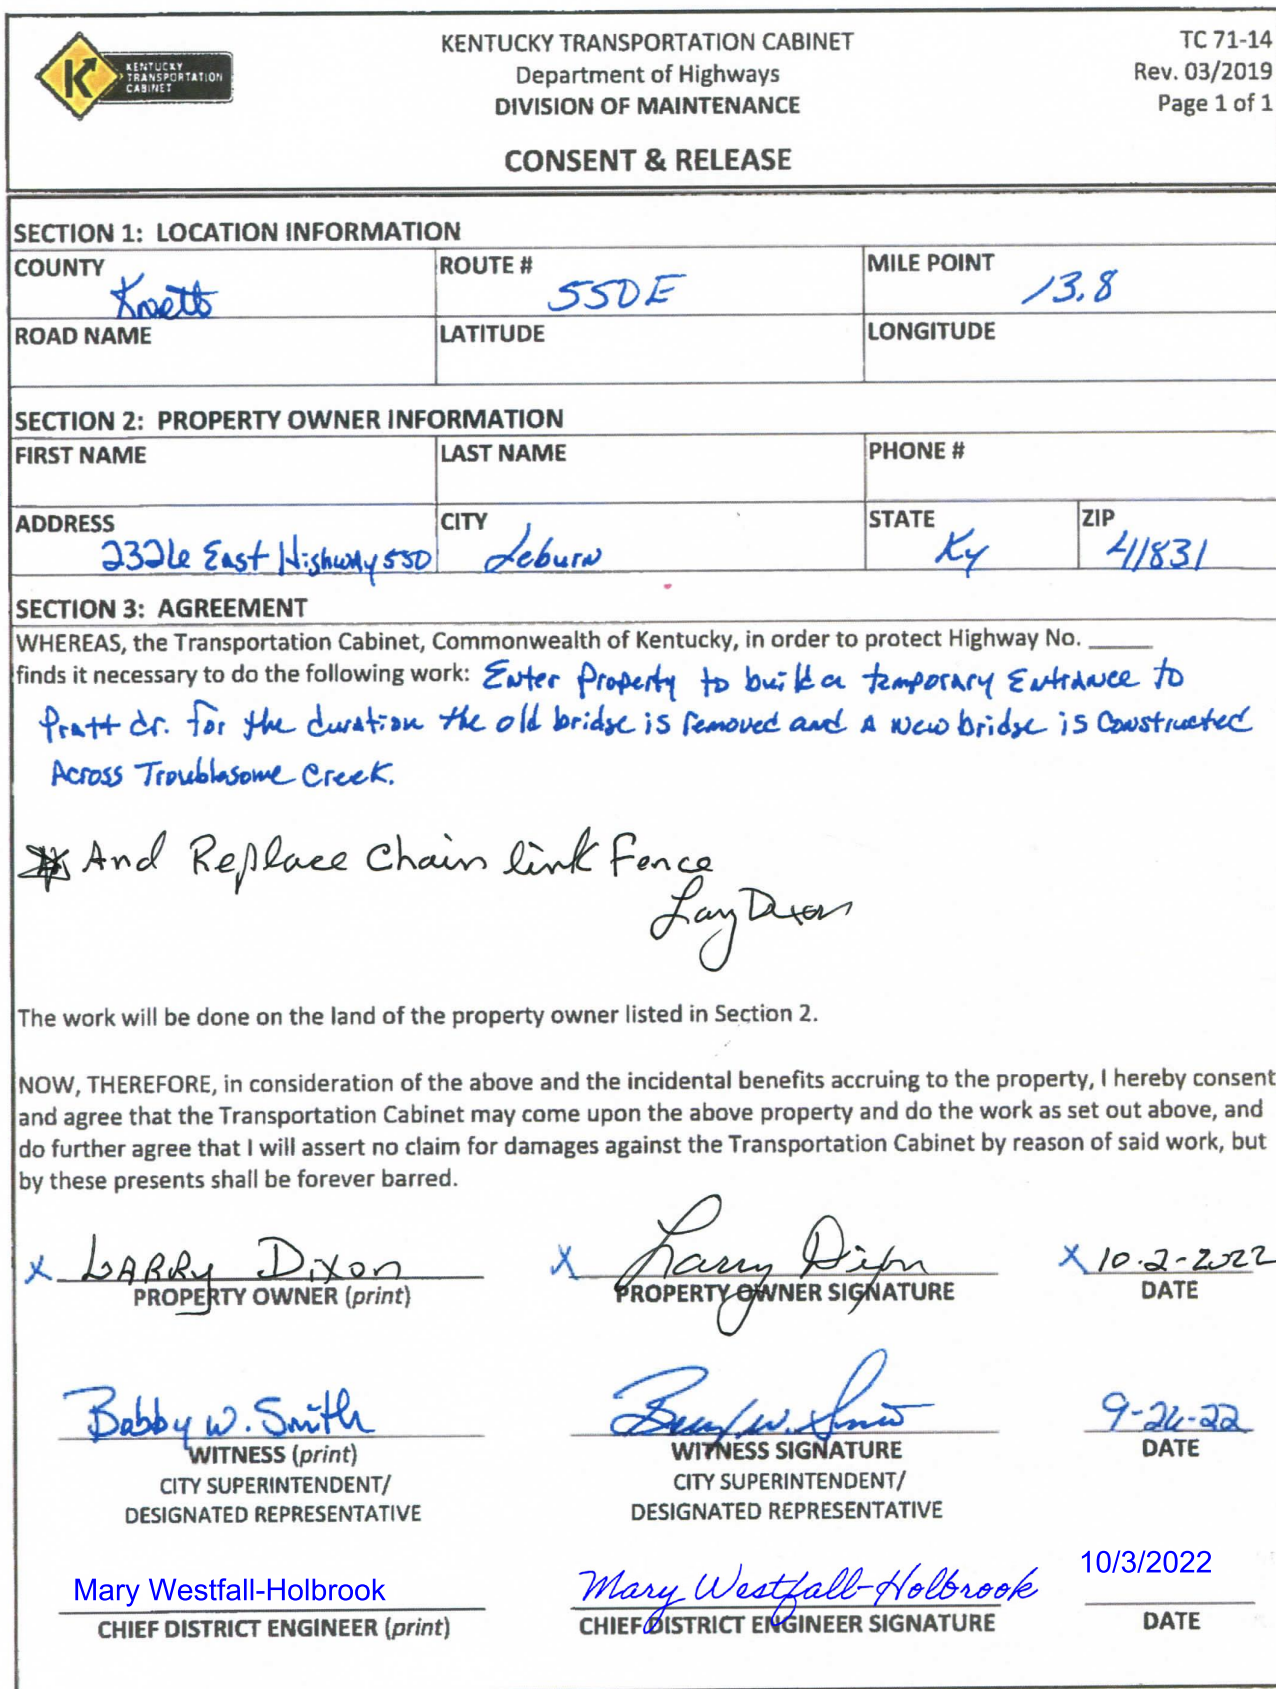 KENTUCKY
TRANSPORTATION
CABINET
KENTUCKY TRANSPORTATION CABINET
Department of Highways
DIVISION OF MAINTENANCE
CONSENT & RELEASE
TC 71-14
Rev. 03/2019
Page 1 of 1
SECTION 1: LOCATION INFORMATION
COUNTY Knott
ROUTE # 550E
MILE POINT 13.8
ROAD NAME
LATITUDE
LONGITUDE
SECTION 2: PROPERTY OWNER INFORMATION
FIRST NAME
LAST NAME
PHONE #
ADDRESS 2326 East Highway 550
CITY Leburn
STATE Ky
ZIP 41831
SECTION 3: AGREEMENT
WHEREAS, the Transportation Cabinet, Commonwealth of Kentucky, in order to protect Highway No. ______
finds it necessary to do the following work: Enter Property to build a temporary Entrance to
Pratt dr. for the duration the old bridge is removed and A New bridge is Constructed
Across Troublesome Creek.
* And Replace Chain link Fence
Larry Dixon
The work will be done on the land of the property owner listed in Section 2.
NOW, THEREFORE, in consideration of the above and the incidental benefits accruing to the property, I hereby consent
and agree that the Transportation Cabinet may come upon the above property and do the work as set out above, and
do further agree that I will assert no claim for damages against the Transportation Cabinet by reason of said work, but
by these presents shall be forever barred.
X LARRY Dixon X Larry Dixon X 10-2-2022
PROPERTY OWNER (print) PROPERTY OWNER SIGNATURE DATE
Bobby W. Smith 9-26-22
WITNESS (print) WITNESS SIGNATURE DATE
CITY SUPERINTENDENT/ CITY SUPERINTENDENT/
DESIGNATED REPRESENTATIVE DESIGNATED REPRESENTATIVE
Mary Westfall-Holbrook Mary Westfall-Holbrook 10/3/2022
CHIEF DISTRICT ENGINEER (print) CHIEF DISTRICT ENGINEER SIGNATURE DATE